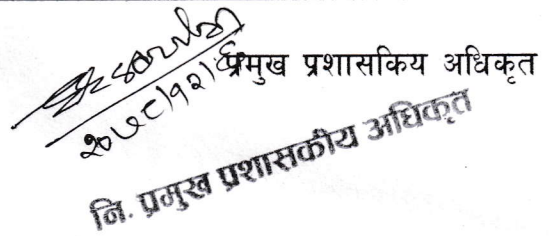 २०७८।१२।६
प्रमुख प्रशासकिय अधिकृत
नि. प्रमुख प्रशासकीय अधिकृत